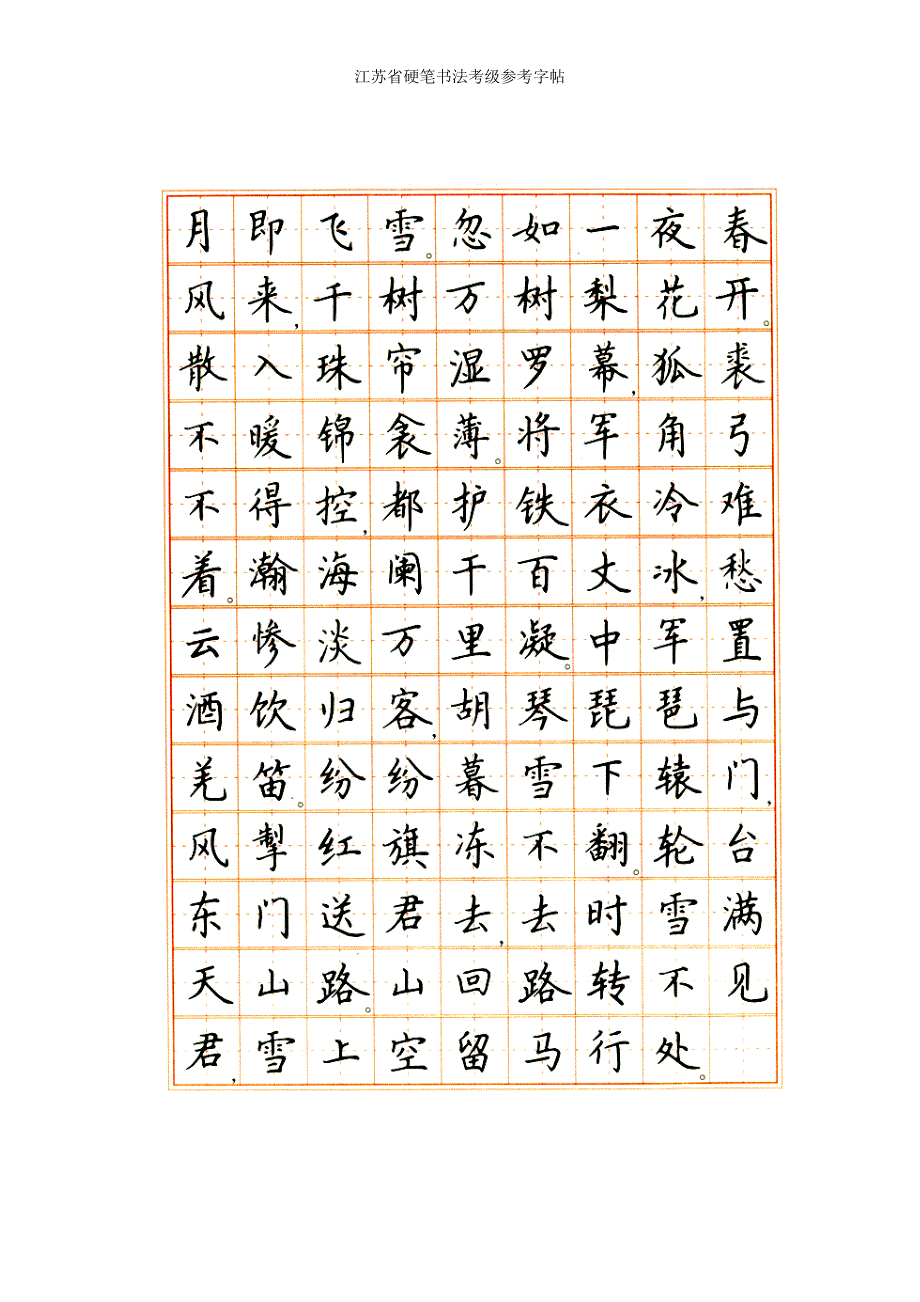 江苏省硬笔书法考级参考字帖
月即飞雪。忽如一夜春
风来,千树万树梨花开。
散入珠帘湿罗幕,狐裘
不暖锦衾薄。将军角弓
不得控,都护铁衣冷难
着。瀚海阑干百丈冰,愁
云惨淡万里凝。中军置
酒饮归客,胡琴琵琶与
羌笛。纷纷暮雪下辕门,
风掣红旗冻不翻。轮台
东门送君去,去时雪满
天山路。山回路转不见
君,雪上空留马行处。